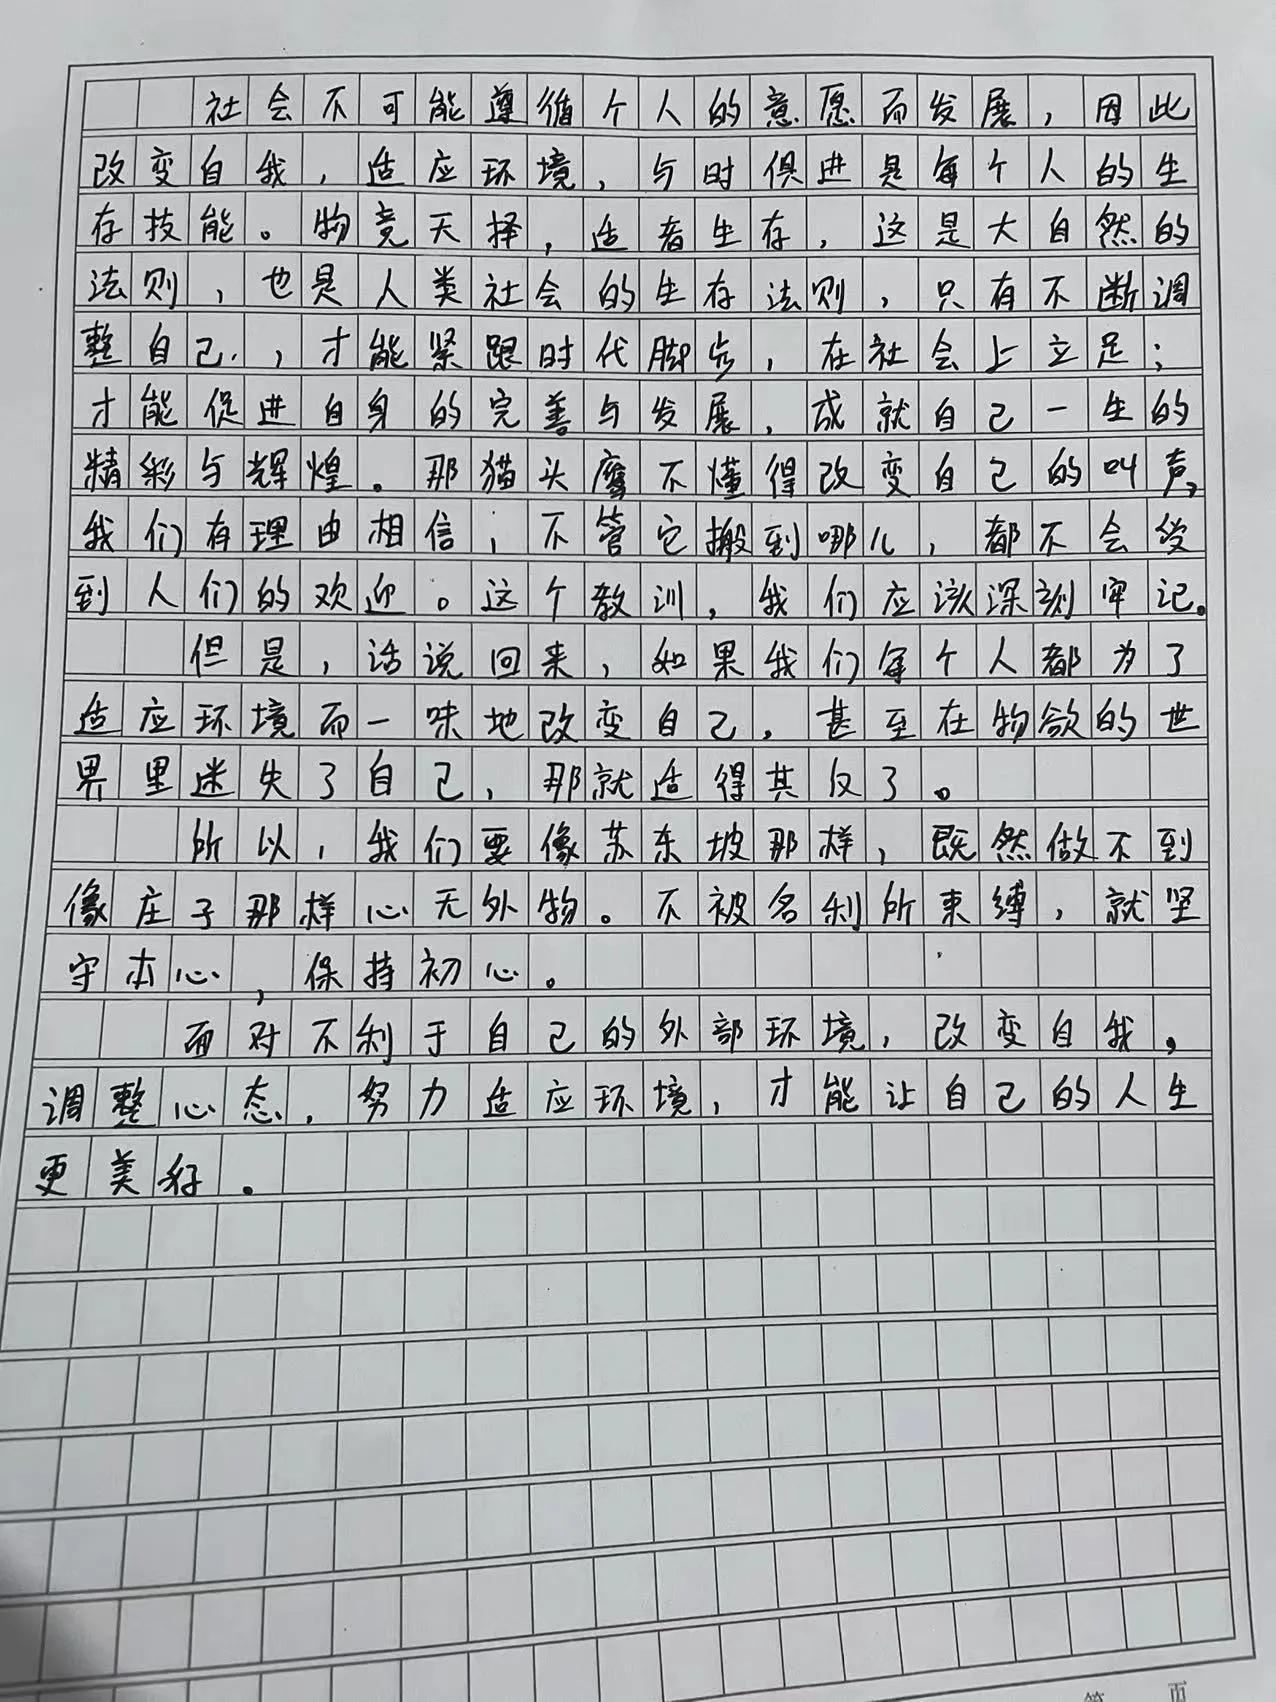 社会不可能遵循个人的意愿而发展，因此
改变自我，适应环境，与时俱进是每个人的生
存技能。物竞天择，适者生存，这是大自然的
法则，也是人类社会的生存法则，只有不断调
整自己，才能紧跟时代脚步，在社会上立足；
才能促进自身的完善与发展，成就自己一生的
精彩与辉煌。那猫头鹰不懂得改变自己的叫声，
我们有理由相信，不管它搬到哪儿，都不会受
到人们的欢迎。这个教训，我们应该深刻牢记。
但是，话说回来，如果我们每个人都为了
适应环境而一味地改变自己，甚至在物欲的世
界里迷失了自己，那就适得其反了。
所以，我们要像苏东坡那样，既然做不到
像庄子那样心无外物。不被名利所束缚，就坚
守本心，保持初心。
而对不利于自己的外部环境，改变自我，
调整心态，努力适应环境，才能让自己的人生
更美好。
第 页